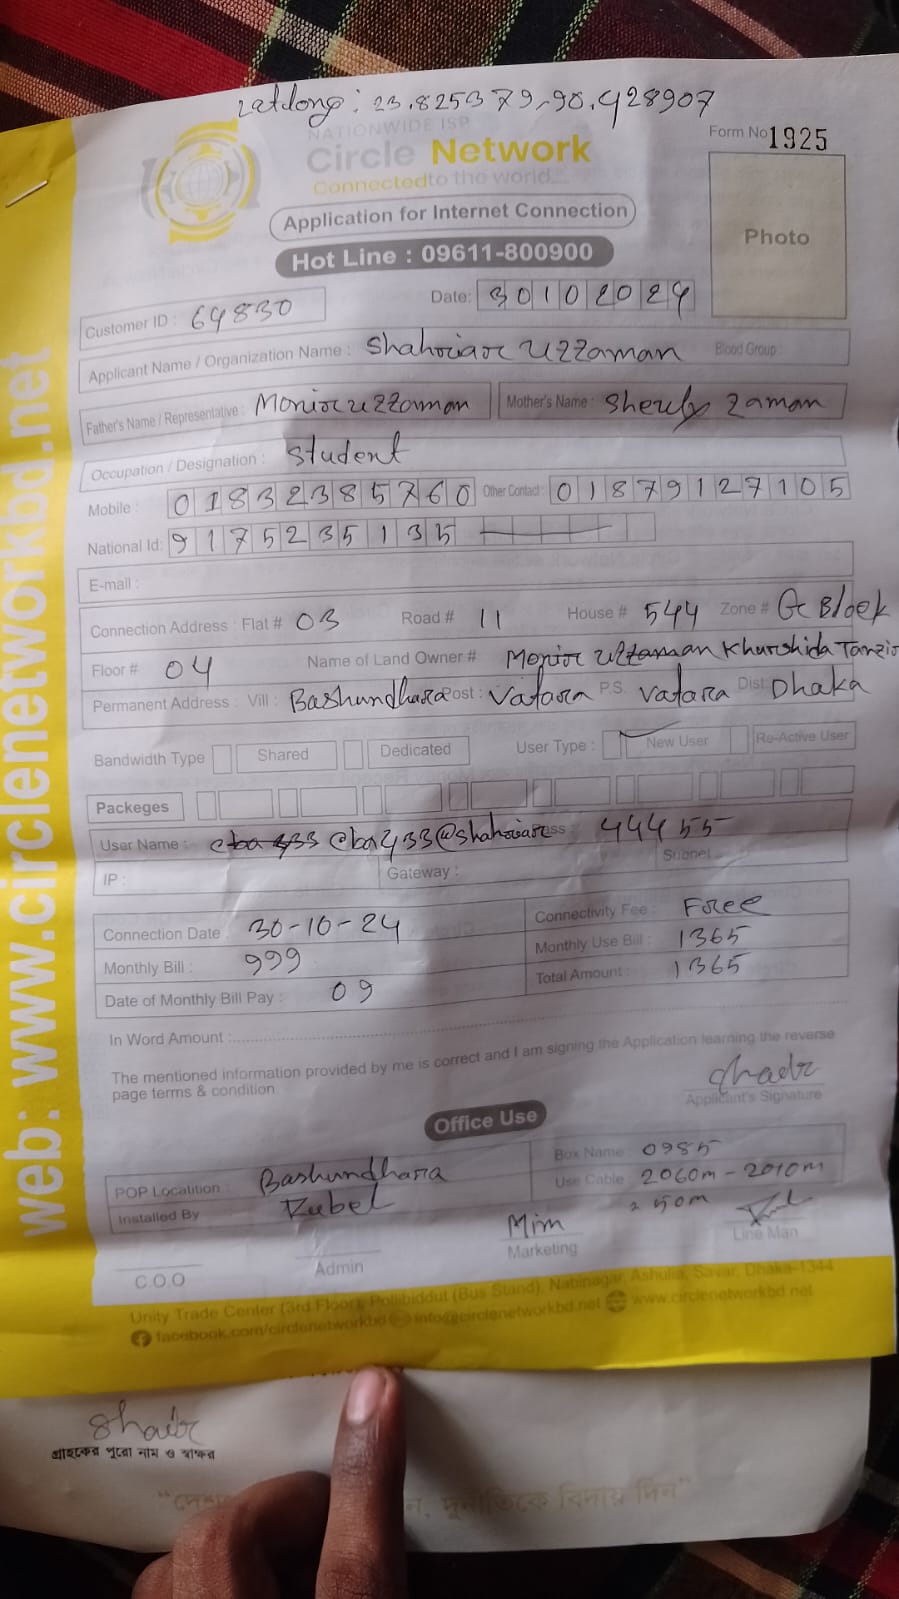 Latlong: 23.825379,90.428907
NATIONWIDE ISP
Circle Network
Connected to the world...
Form No 1925
Application for Internet Connection
Hot Line : 09611-800900
Photo
Customer ID : 64830
Date: 30102024
Applicant Name / Organization Name : Shahriar Uzzaman Blood Group :
Father's Name / Representative : Monir uzzaman Mother's Name : Sherely Zaman
Occupation / Designation : Student
Mobile : 01832385760 Other Contact : 01879127105
National Id: 9175235135
E-mail :
Connection Address : Flat # 03 Road # 11 House # 544 Zone # G Block
Floor # 04 Name of Land Owner # Monir Uzzaman Khurshida
Permanent Address : Vill : Bashundhara Post : Vatara P.S. Vatara Dist: Dhaka
Bandwidth Type Shared Dedicated User Type : New User Re-Active User
Packeges
User Name : cba433@shahriar 444455
IP : Gateway : Subnet
Connection Date : 30-10-24 Connectivity Fee : Free
Monthly Bill : 999 Monthly Use Bill : 1365
Date of Monthly Bill Pay : 09 Total Amount : 1365
In Word Amount :
The mentioned information provided by me is correct and I am signing the Application learning the reverse
page terms & condition.
Applicant's Signature
Office Use
POP Locatition : Bashundhara Box Name : 0985
Installed By Rubel Use Cable 2060m - 2010m
50m
C.O.O Admin Mim Marketing Line Man
Unity Trade Center (3rd Floor) Pollibiddut (Bus Stand), Nabinagar, Ashulia, Savar, Dhaka-1344
facebook.com/circlenetworkbd info@circlenetworkbd.net www.circlenetworkbd.net
web: www.circlenetworkbd.net
গ্রাহকের পুরো নাম ও স্বাক্ষর
দুর্নীতিকে বিদায় দিন"